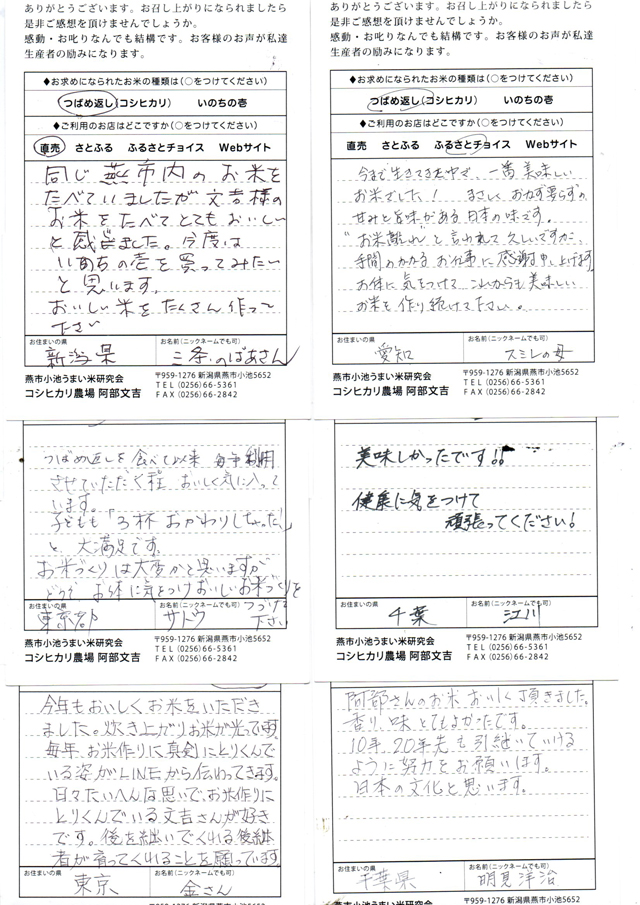 ありがとうございます。お召し上がりになられましたら
是非ご感想を頂けませんでしょうか。
感動・お叱りなんでも結構です。お客様のお声が私達
生産者の励みになります。
◆お求めになられたお米の種類は（○をつけてください）
つばめ返し（コシヒカリ） いのちの壱
◆ご利用のお店はどこですか（○をつけてください）
直売 さとふる ふるさとチョイス Webサイト
同じ燕市内のお米を
たべていましたが文吉様の
お米をたべてとてもおいしい
と感じました。今度は
いのちの壱を買ってみたい
と思います。
おいしい米をたくさん作って
下さい
お住まいの県 お名前（ニックネームでも可）
新潟県 三条.のばあさん
燕市小池うまい米研究会
コシヒカリ農場 阿部文吉
〒959-1276 新潟県燕市小池5652
TEL (0256)66-5361
FAX (0256)66-2842
ありがとうございます。お召し上がりになられましたら
是非ご感想を頂けませんでしょうか。
感動・お叱りなんでも結構です。お客様のお声が私達
生産者の励みになります。
◆お求めになられたお米の種類は（○をつけてください）
つばめ返し（コシヒカリ） いのちの壱
◆ご利用のお店はどこですか（○をつけてください）
直売 さとふる ふるさとチョイス Webサイト
今まで生きてきた中で、一番美味しい
お米でした! まさしく おかず要らずの
甘みと旨味がある日本の味です。
"お米離れ"と言われて久しいですが、
手間のかかるお仕事に感謝申し上げます
お体に気をつけて これからも美味しい
お米を作り続けて下さい。
お住まいの県 お名前（ニックネームでも可）
愛知 スミレの母
燕市小池うまい米研究会
コシヒカリ農場 阿部文吉
〒959-1276 新潟県燕市小池5652
TEL (0256)66-5361
FAX (0256)66-2842
つばめ返しを食べて以来 毎年利用
させていただく程、おいしく気に入って
います。
子どもも「3杯おかわりしちゃった!」
と大満足です。
お米づくりは大変かと思いますが
どうぞ お体に気をつけおいしいお米づくりを
つづけて
下さい
お住まいの県 お名前（ニックネームでも可）
東京都 サトウ
燕市小池うまい米研究会
コシヒカリ農場 阿部文吉
〒959-1276 新潟県燕市小池5652
TEL (0256)66-5361
FAX (0256)66-2842
美味しかったです!!
健康に気をつけて
頑張ってください!
お住まいの県 お名前（ニックネームでも可）
千葉 江川
燕市小池うまい米研究会
コシヒカリ農場 阿部文吉
〒959-1276 新潟県燕市小池5652
TEL (0256)66-5361
FAX (0256)66-2842
今年もおいしくお米をいただき
ました。炊き上がりお米が光って
毎年、お米作りに真剣にとりくんで
いる姿がLINEから伝わってきます。
日々たいへんな思いで、お米作りに
とりくんでいる文吉さんが好き
です。後を継いでくれる後継
者が育ってくれることを願っています
お住まいの県 お名前（ニックネームでも可）
東京 金さん
阿部さんのお米おいしく頂きました。
香り、味とてもよかったです。
10年、20年先も引継いでいける
ように努力をお願います。
日本の文化と思います。
お住まいの県 お名前（ニックネームでも可）
千葉県 明見洋治
燕市小池うまい米研究会